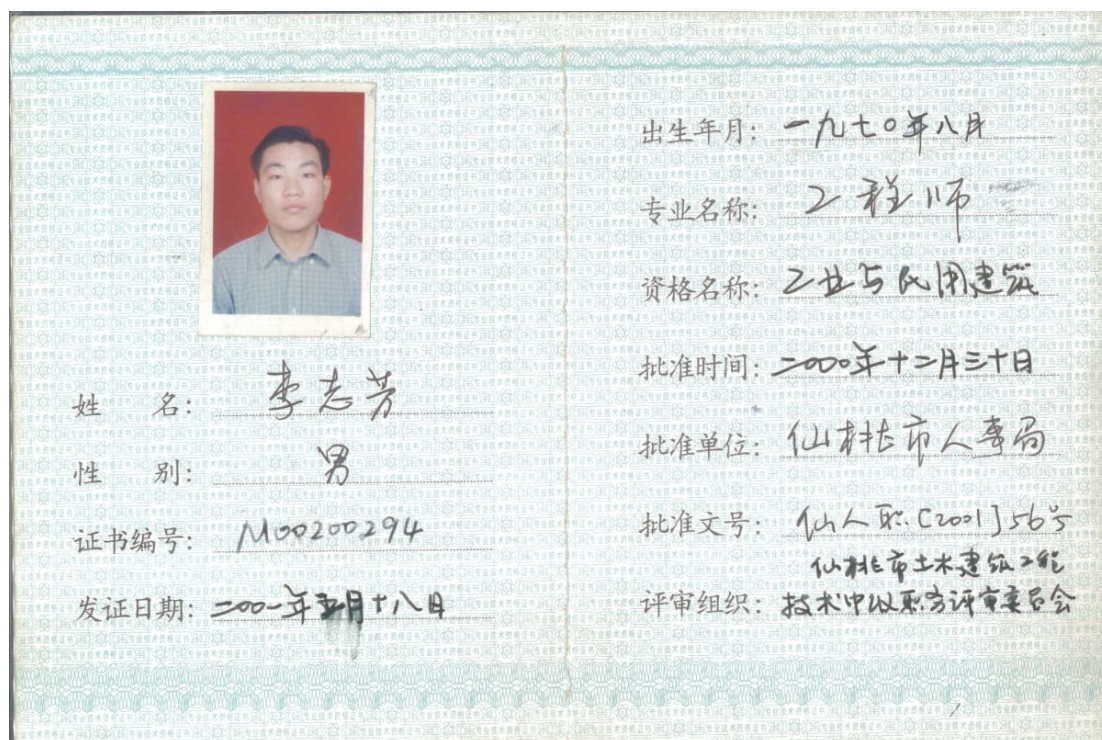 姓 名: 李志芳
性 别: 男
证书编号: M00200294
发证日期: 二000一年五月十八日
出生年月: 一九七0年八月
专业名称: 工程师
资格名称: 工业与民用建筑
批准时间: 二000年十二月三十日
批准单位: 仙桃市人事局
批准文号: 仙人职.[2001]56号
仙桃市土木建筑工程
评审组织: 技术中级职务评审委员会